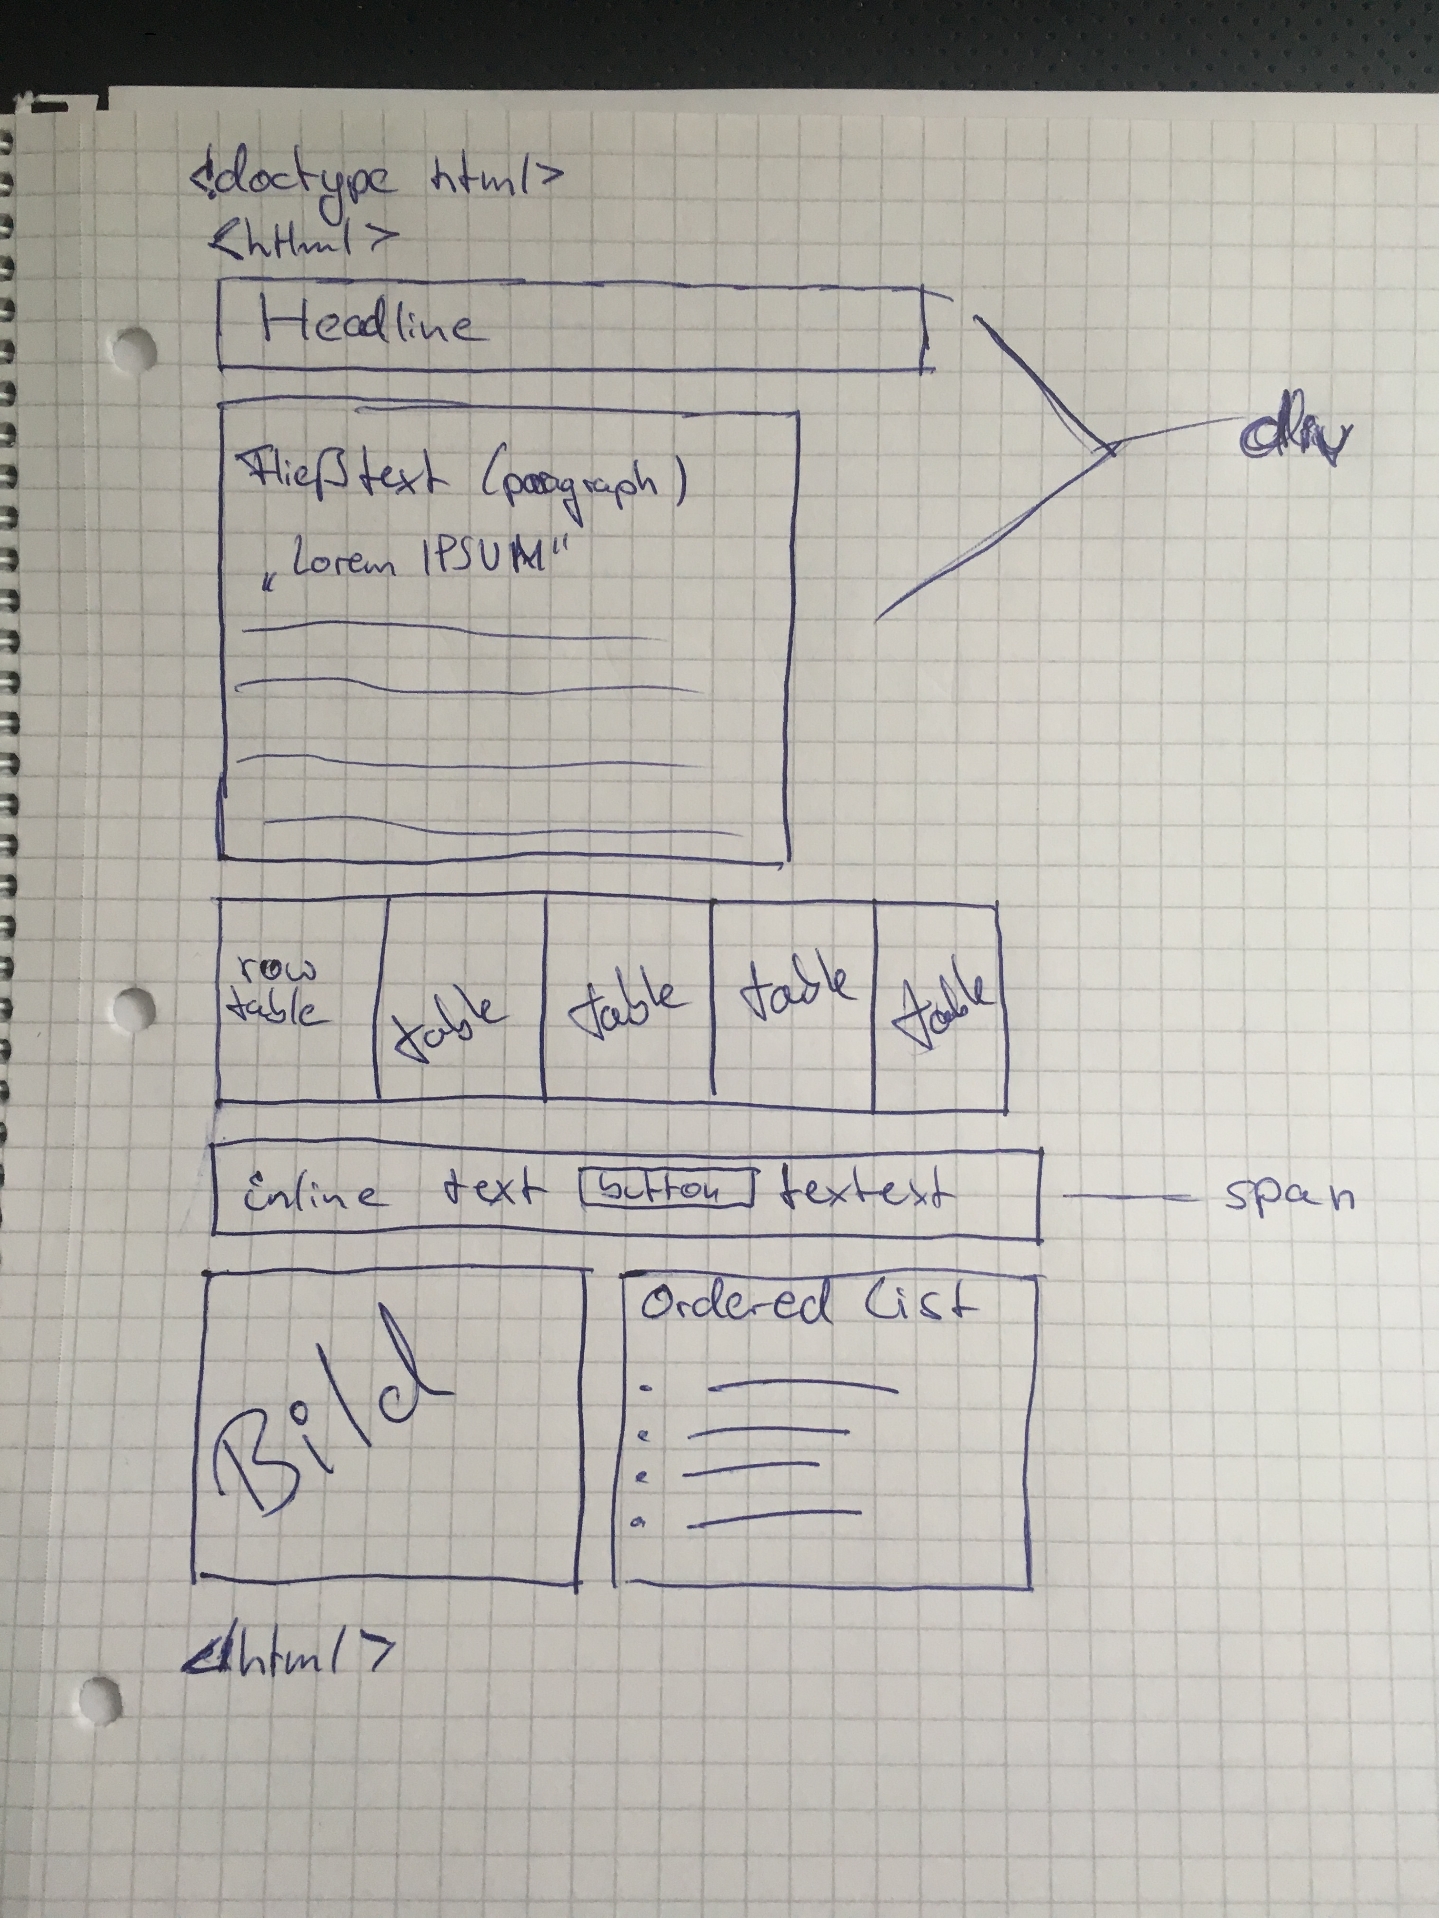 <!doctype html>
<html>
Headline
div
Fließtext (paragraph)
„Lorem IPSUM“
row
table
table
table
table
table
inline text button textext
span
Bild
Ordered List
</html>